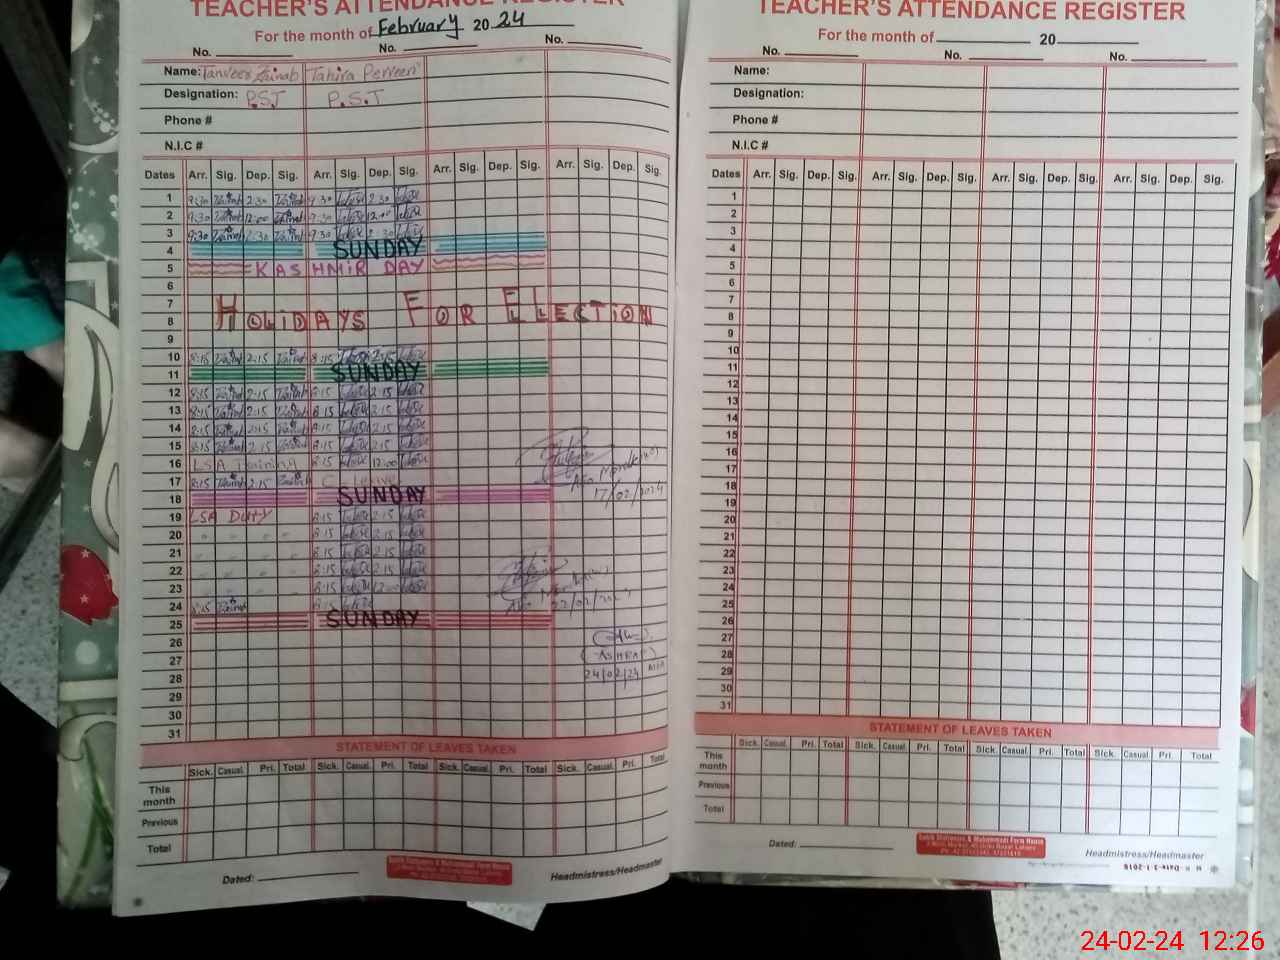 TEACHER'S ATTENDANCE REGISTER
For the month of February 2024
No. No. No.
Name: Tanveer Zainab Tahira Perveen
Designation: P.S.T P.S.T
Phone #
N.I.C #
Dates Arr. Sig. Dep. Sig. Arr. Sig. Dep. Sig. Arr. Sig. Dep. Sig. Arr. Sig. Dep. Sig.
1 9:30 Zainab 2:30 Zainab 9:30 2:30
2 9:30 Zainab 12:00 Zainab 9:30 12:00
3 9:30 Zainab 2:30 Zainab 9:30 2:30
4 SUNDAY
5 KASHMIR DAY
6
7
8 HOLIDAYS FOR ELECTION
9
10 8:15 Zainab 2:15 Zainab 8:15 2:15
11 SUNDAY
12 8:15 Zainab 2:15 Zainab 8:15 2:15
13 8:15 Zainab 2:15 Zainab 8:15 2:15
14 8:15 Zainab 2:15 Zainab 8:15 2:15
15 8:15 Zainab 2:15 Zainab 8:15 2:15
16 LSA Training 8:15 12:00
17 8:15 Zainab 2:15 Zainab C Leave
17/02/2024
18 SUNDAY
19 LSA Duty 8:15 2:15
20 " " " " 8:15 2:15
21 " " " " 8:15 2:15
22 " " " " 8:15 2:15
23 " " " " 8:15 12:00
24 8:15 Zainab 8:15
22/02/2024
25 SUNDAY
26
27 (ASHRAF)
28 24/02/24
29
30
31
STATEMENT OF LEAVES TAKEN
Sick. Casual. Pri. Total Sick. Casual. Pri. Total Sick. Casual. Pri. Total Sick. Casual. Pri. Total
This month
Previous
Total
Dated:
Headmistress/Headmaster
TEACHER'S ATTENDANCE REGISTER
For the month of 20
No. No. No.
Name:
Designation:
Phone #
N.I.C #
Dates Arr. Sig. Dep. Sig. Arr. Sig. Dep. Sig. Arr. Sig. Dep. Sig. Arr. Sig. Dep. Sig.
1
2
3
4
5
6
7
8
9
10
11
12
13
14
15
16
17
18
19
20
21
22
23
24
25
26
27
28
29
30
31
STATEMENT OF LEAVES TAKEN
Sick. Casual. Pri. Total Sick. Casual. Pri. Total Sick. Casual. Pri. Total Sick. Casual. Pri. Total
This month
Previous
Total
Dated:
Headmistress/Headmaster
24-02-24 12:26